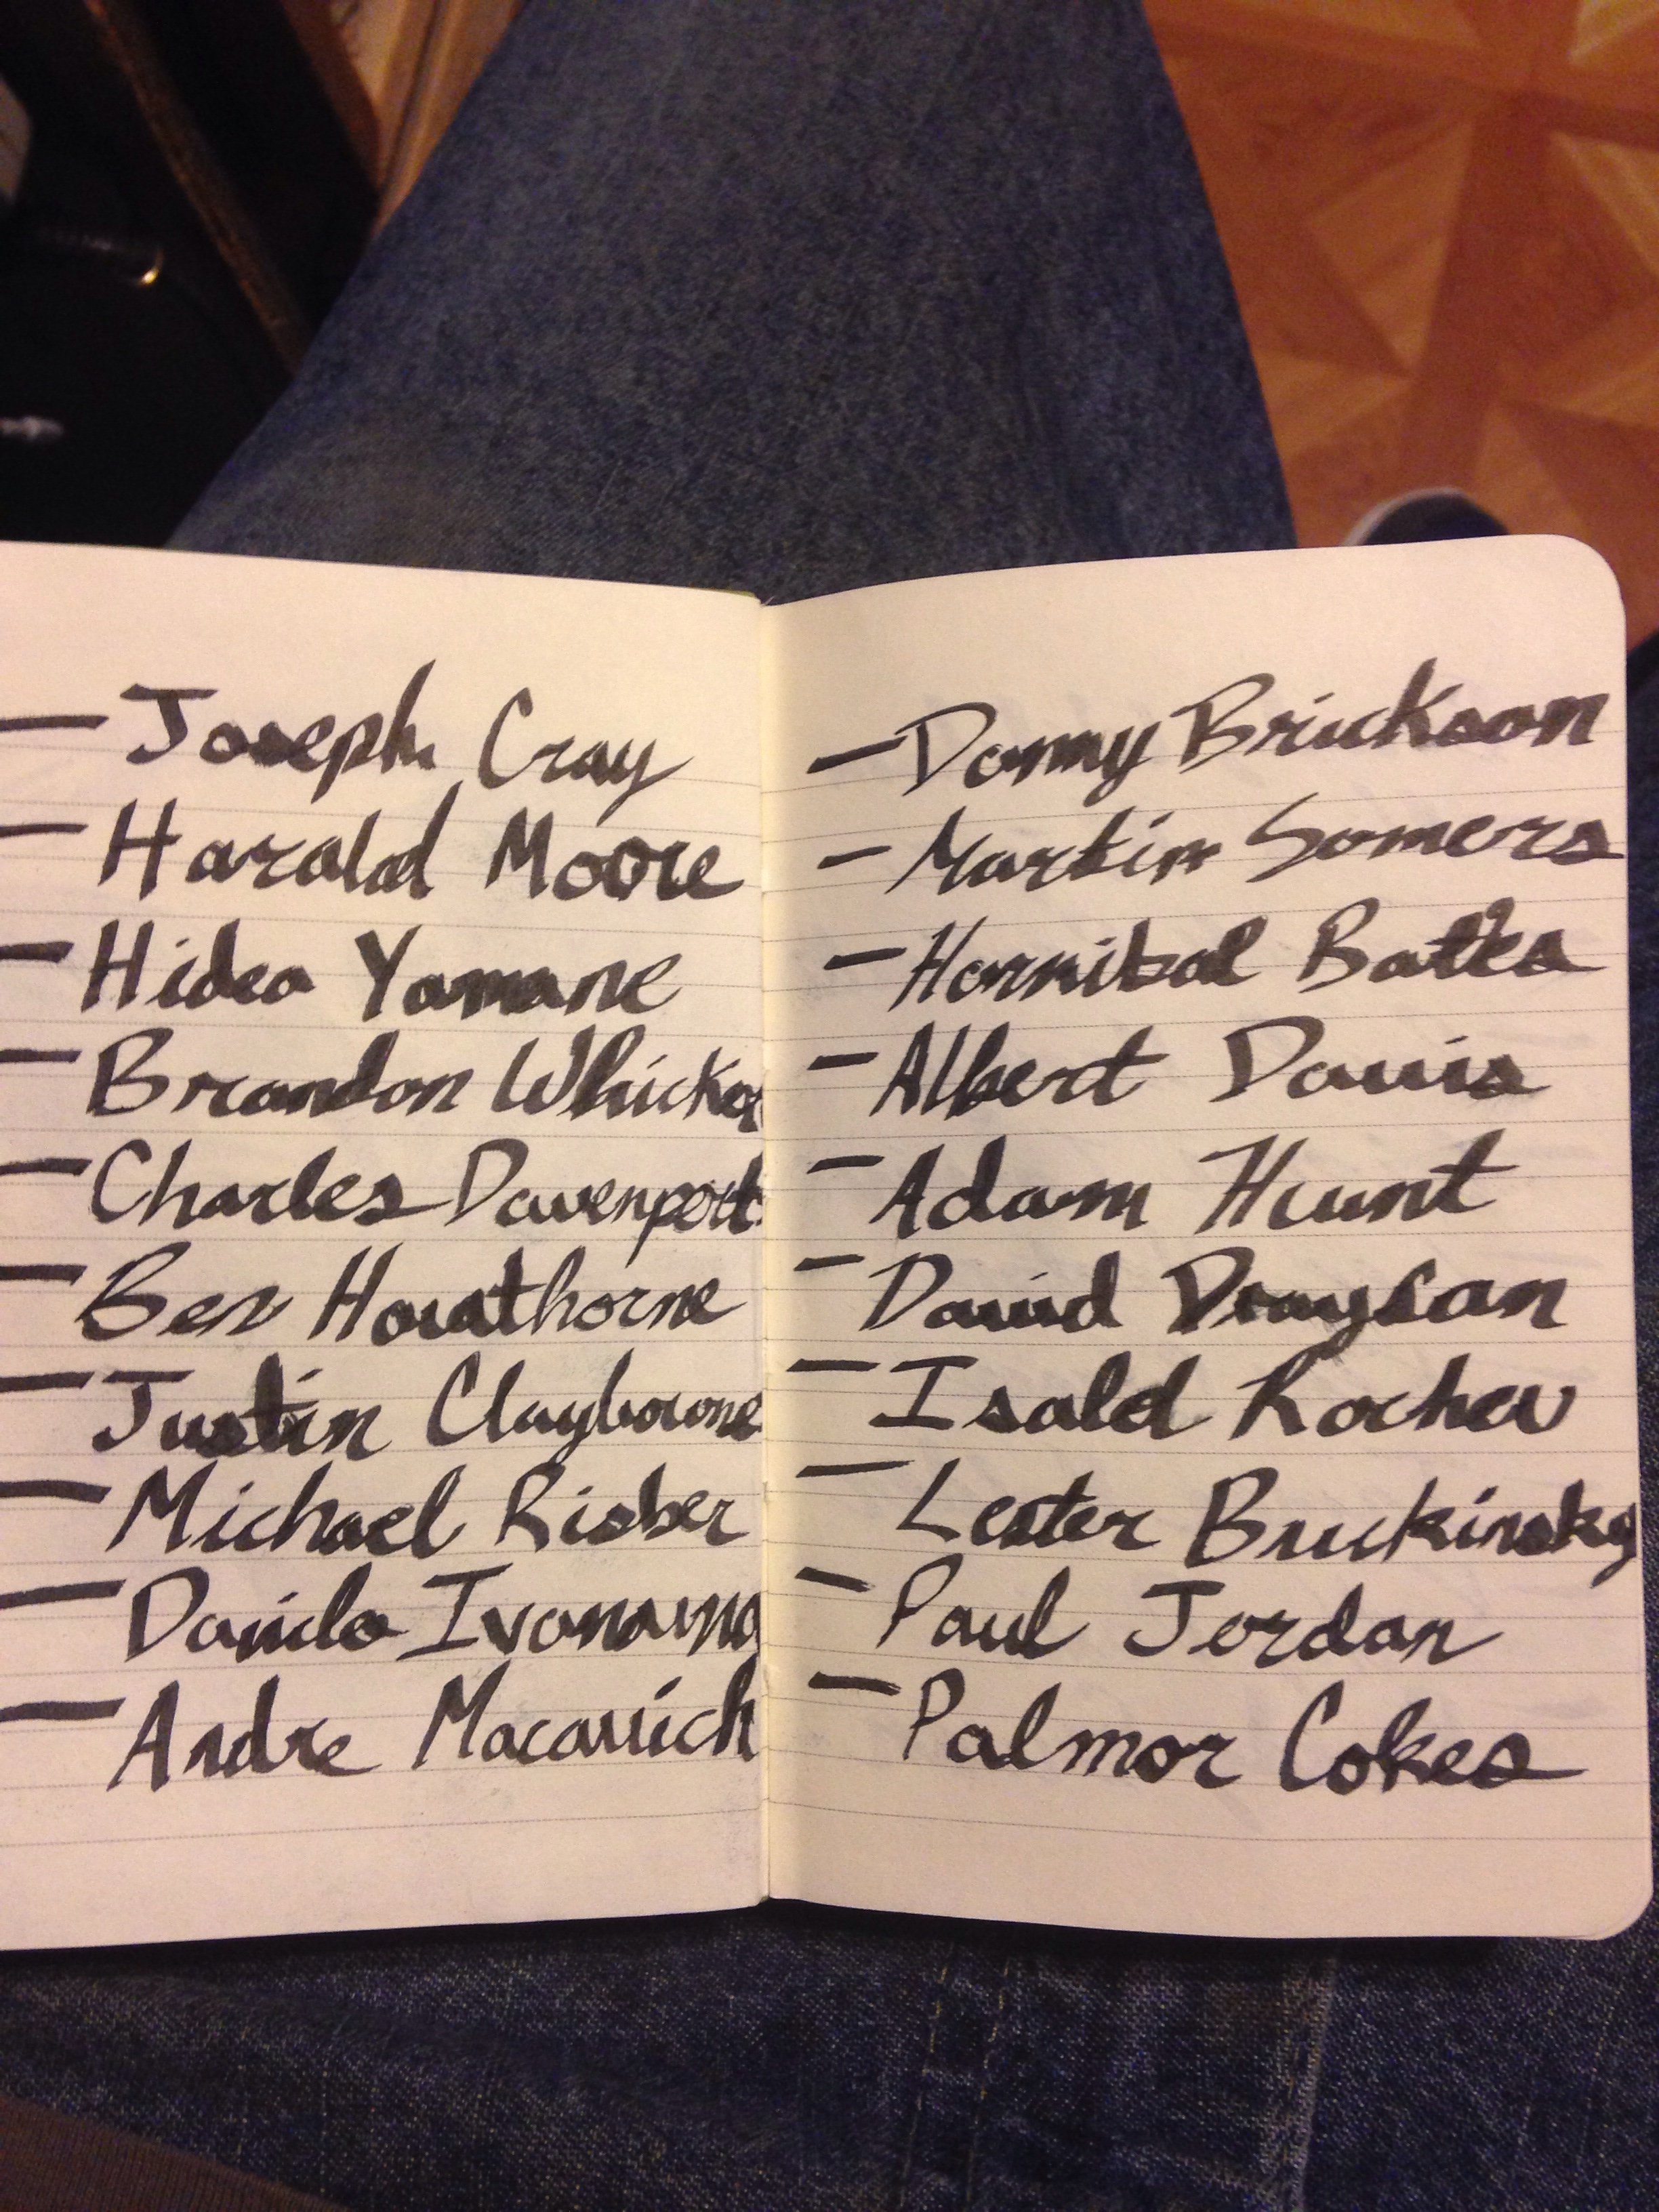 — Joseph Cray
— Harold Moore
— Hideo Yamane
— Brandon
— Charles Davenport
— Ben Hawthorne
— Justin Claybourne
— Michael Risber
— Danilo
— Andre
— Donny Brickson
— Martin Somers
— Hannibal Bates
— Albert Davis
— Adam Hunt
— David Drayson
— Isald Rochev
— Lester Buckinsky
— Paul Jordan
— Palmor Cokes